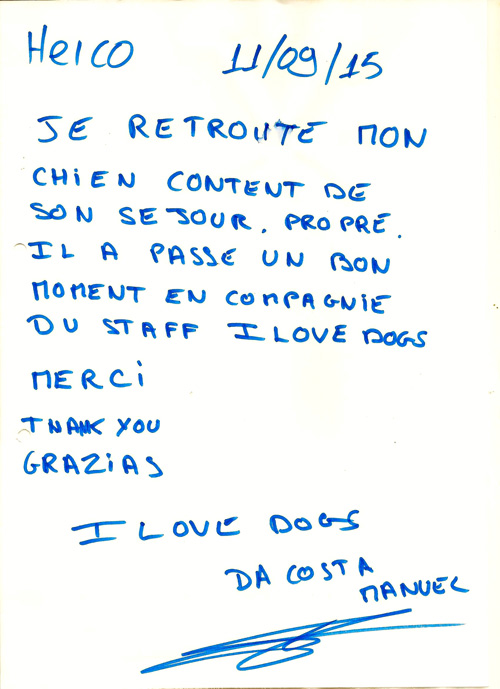 Heico 11/09/15
JE RETROUTE MON
CHiEN CONTENT DE
SON SEJOUR. PROPRE.
IL A PASSE UN BON
MOMENT EN COMPAGNiE
DU STAFF I LOVE DOGS
MERCi
THANK YOU
GRAZiAS
I LOVE DOGS
DA COSTA
MANUEL